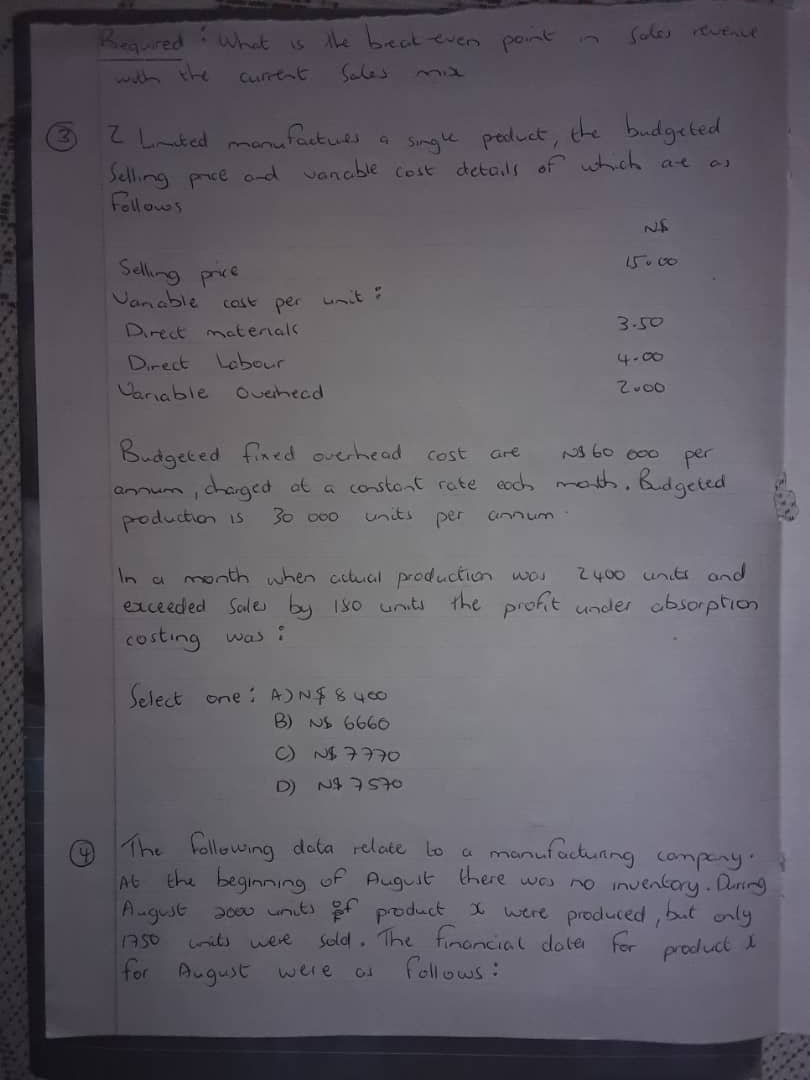 Required : What is the break-even point in sales revenue
with the current sales mix
③ Z Limited manufactures a single product, the budgeted
Selling price and variable cost details of which are as
follows
N$
Selling price 15.00
Variable cost per unit :
Direct materials 3.50
Direct Labour 4.00
Variable Overhead 2.00
Budgeted fixed overhead cost are N$ 60 000 per
annum, charged at a constant rate each month. Budgeted
production is 30 000 units per annum.
In a month when actual production was 2400 units and
exceeded sales by 180 units the profit under absorption
costing was :
Select one : A) N$ 8 400
B) N$ 6660
C) N$ 7770
D) N$ 7570
④ The following data relate to a manufacturing company.
At the beginning of August there was no inventory. During
August 2000 units of product x were produced, but only
1750 units were sold. The financial data for product x
for August were as follows :